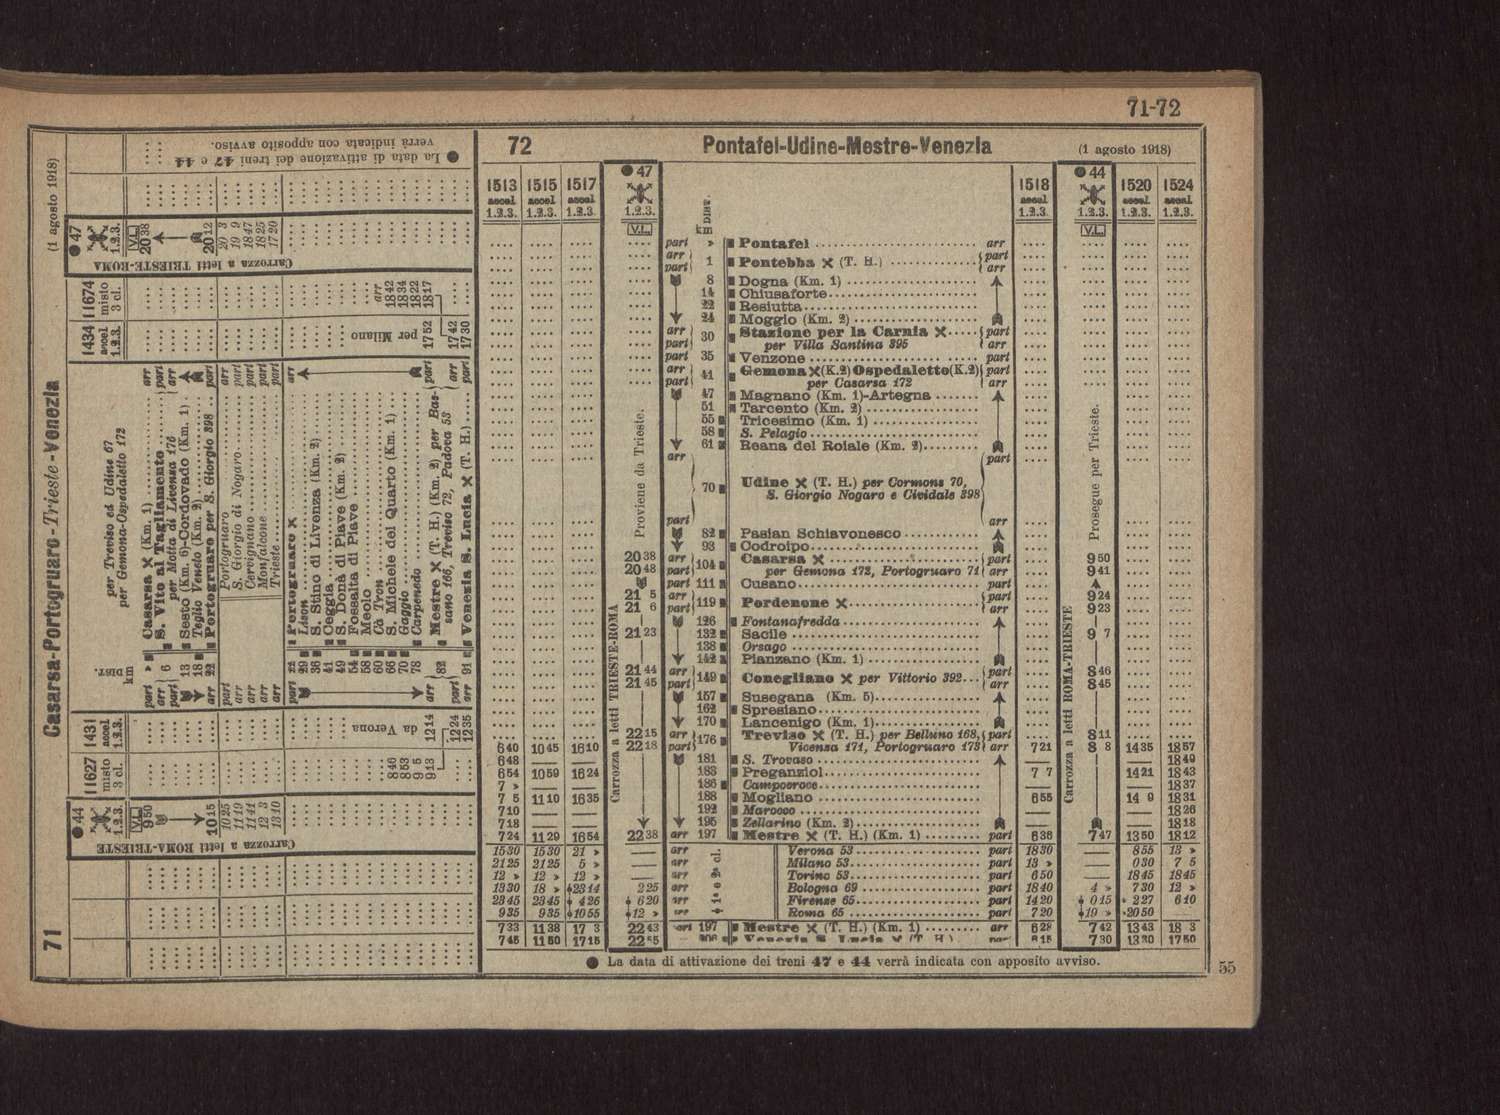 71-72
72 Pontafel-Udine-Mestre-Venezia (1 agosto 1918)
1513 accel. 1.2.3.
1515 accel. 1.2.3.
1517 accel. 1.2.3.
● 47 1.2.3. V.L.
DIST. km
1518 accel. 1.2.3.
● 44 1.2.3. V.L.
1520 accel. 1.2.3.
1524 accel. 1.2.3.
part » Pontafel arr
arr part 1 Pontebba (T. H.) part arr
8 Dogna (Km. 1)
14 Chiusaforte
22 Resiutta
24 Moggio (Km. 2)
arr 30 Stazione per la Carnia part
part per Villa Santina 395 arr
part 35 Venzone part
arr 41 Gemona (K.2) Ospedaletto (K.2) part
part per Casarsa 172 arr
47 Magnano (Km. 1)-Artegna
51 Tarcento (Km. 2)
55 Tricesimo (Km. 1)
58 S. Pelagio
61 Reana del Roiale (Km. 2)
arr part
70 Udine (T. H.) per Cormons 70,
S. Giorgio Nogaro e Cividale 398
part arr
82 Pasian Schiavonesco
93 Codroipo
20 38 arr 104 Casarsa part 9 50
20 48 part per Gemona 172, Portogruaro 71 arr 9 41
part 111 Cusano part
21 5 arr 119 Pordenone part 9 24
21 6 part arr 9 23
126 Fontanafredda
21 23 132 Sacile 9 7
138 Orsago
142 Pianzano (Km. 1)
21 44 arr 149 Conegliano per Vittorio 392 part 8 46
21 45 part arr 8 45
157 Susegana (Km. 5)
162 Spresiano
170 Lancenigo (Km. 1)
22 15 arr 176 Treviso (T. H.) per Belluno 168, part 8 11
6 40 10 45 16 10 22 18 part Vicenza 171, Portogruaro 173 arr 7 21 8 8 14 35 18 57
6 48 — — 181 S. Trovaso — — 18 49
6 54 10 59 16 24 183 Preganziol 7 7 14 21 18 43
7 » — — 186 Campocroce — — 18 37
7 5 11 10 16 35 188 Mogliano 6 55 14 9 18 31
7 10 — — 192 Marocco — — 18 26
7 18 — — 195 Zellarino (Km. 2) — — 18 18
7 24 11 29 16 54 22 38 arr 197 Mestre (T. H.) (Km. 1) part 6 36 7 47 13 50 18 12
15 30 15 30 21 » — arr Verona 53 part 18 30 — 8 55 13 »
21 25 21 25 5 » — arr Milano 53 part 13 » — 0 30 7 5
12 » 12 » 12 » — arr Torino 53 part 6 50 — 18 45 18 45
13 30 18 » 23 14 2 25 arr Bologna 69 part 18 40 4 » 7 30 12 »
23 45 23 45 4 26 6 20 arr Firenze 65 part 14 20 0 15 2 27 6 10
9 35 9 35 10 55 12 » arr Roma 65 part 7 20 19 » 20 50
1ª e 2ª cl.
7 33 11 38 17 3 22 43 part 197 Mestre (T. H.) (Km. 1) arr 6 28 7 42 13 43 18 3
7 45 11 50 17 15 Venezia S. Lucia (T. H.) 7 30 13 30 17 50
Proviene da Trieste.
Carrozza a letti TRIESTE-ROMA
Prosegue per Trieste.
Carrozza a letti ROMA-TRIESTE
● La data di attivazione dei treni 47 e 44 verrà indicata con apposito avviso.
55
71 Casarsa-Portogruaro-Trieste-Venezia (1 agosto 1918)
● 44 1.2.3. V.L.
11627 misto 3 cl.
1431 accel. 1.2.3.
DIST. km
per Treviso ed Udine 67
per Gemona-Ospedaletto 172
1434 accel. 1.2.3.
11674 misto 3 cl.
● 47 1.2.3. V.L.
9 50 part » Casarsa (Km. 1) arr 20 38
arr 6 S. Vito al Tagliamento part
part per Motta di Livenza 176 arr
13 Sesto (Km. 6)-Cordovado (Km. 1)
18 Teglio Veneto (Km. 2)
10 15 arr 22 Portogruaro per S. Giorgio 398 part 20 12
10 25 part Portogruaro arr 20 3
11 19 arr S. Giorgio di Nogaro part 19 9
11 41 arr Cervignano part 18 47
12 3 arr Monfalcone part 18 25
13 10 arr Trieste part 17 20
Carrozza a letti ROMA-TRIESTE
Carrozza a letti TRIESTE-ROMA
part 22 Portogruaro arr
29 Lison
36 S. Stino di Livenza (Km. 2)
41 Ceggia
49 S. Donà di Piave (Km. 2)
54 Fossalta di Piave
58 Meolo
60 Cà Tron arr
8 40 66 S. Michele del Quarto (Km. 1) 18 42
8 53 70 Gaggio 18 34
9 5 78 Carpenedo 18 22
9 13 12 14 arr 82 Mestre (T. H.) (Km. 2) per Bas- part 17 52 18 17
da Verona
per Milano
12 24 part sano 166, Treviso 72, Padova 53 arr 17 42
12 35 arr 91 Venezia S. Lucia (T. H.) part 17 30
● La data di attivazione dei treni 47 e 44
verrà indicata con apposito avviso.